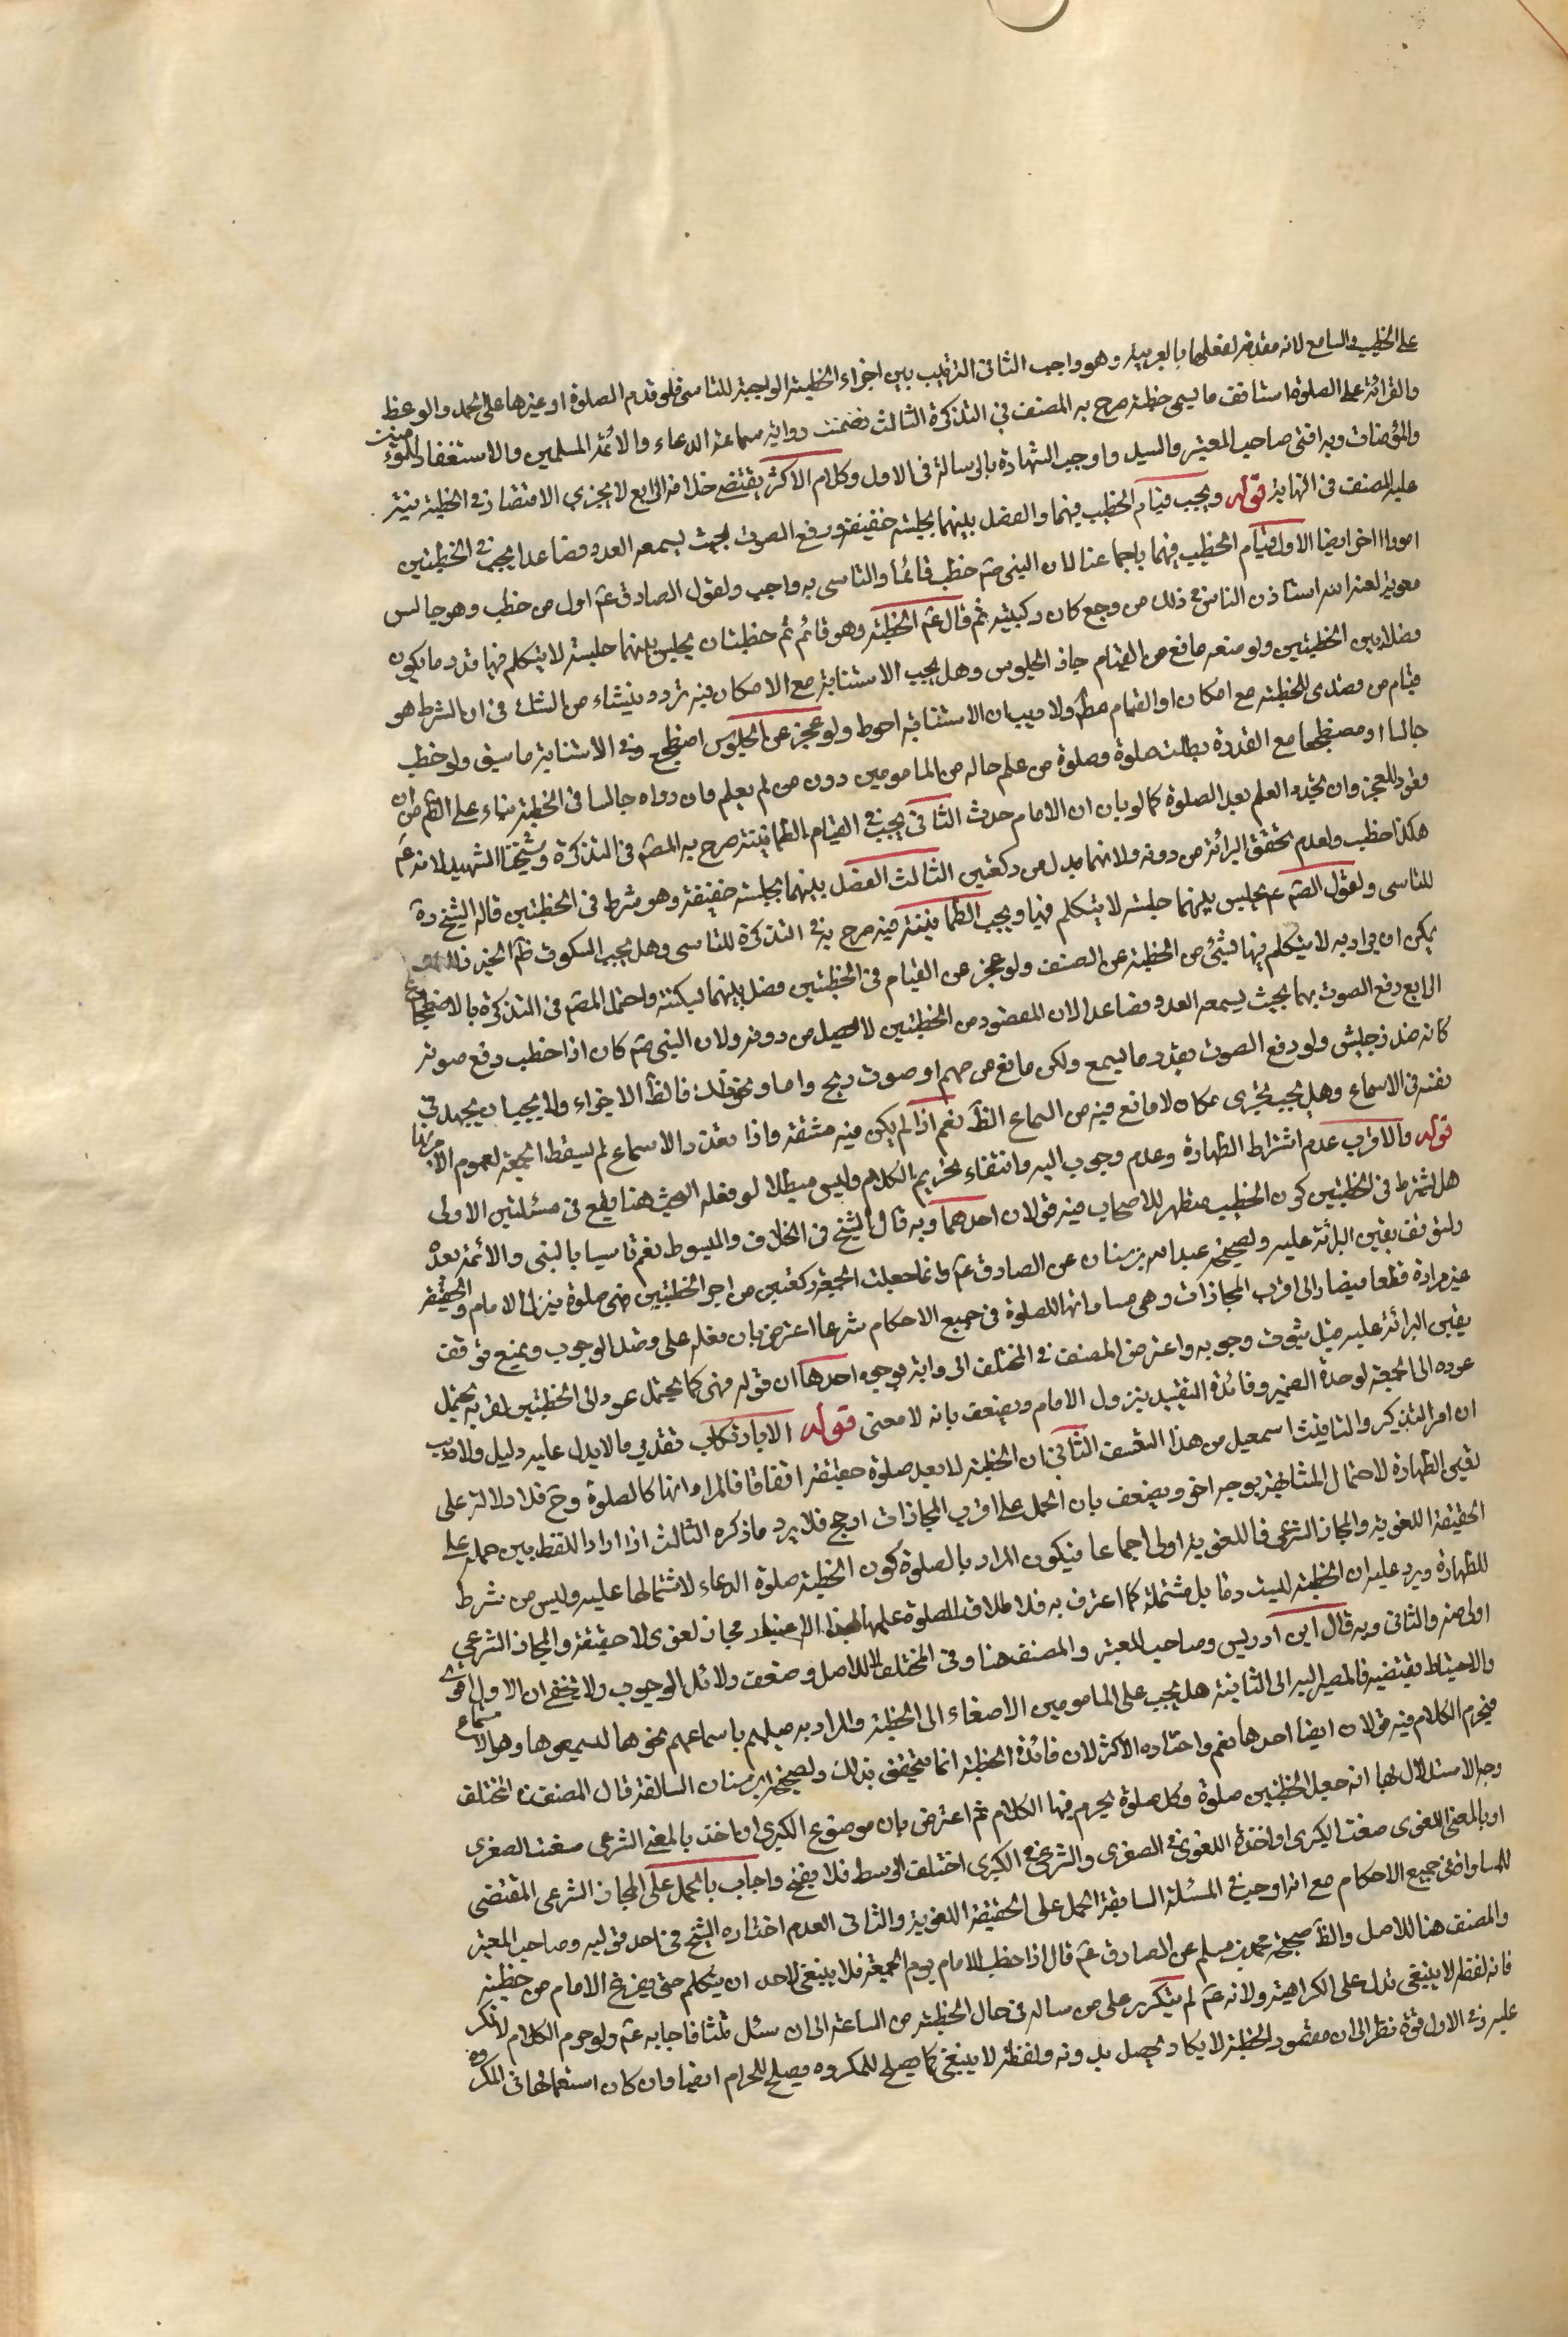 على الخطيب والسامع لانه مقدمة لفعلهما بالعربية وهو واجب الثانى الترتيب بين اجزاء الخطبة الواجبة للتاسى فلو قدم الصلوة او غيرها على الحمد والوعظ
والقرائة على الصلوة استانف ما يسمى خطبة صرح به المصنف في التذكرة الثالث تضمنت رواية سماعة الدعاء والائمة المسلمين والاستغفار للمؤمنين
والمؤمنات وبه افتى صاحب المعتبر والسيد واوجب الشهادة بالرسالة فى الاول وكلام الاكثر يقتضي خلافه الرابع لا يجزي الاقتصار في الخطبة بنثر
عليه المصنف فى النهاية قوله ويجب قيام الخطيب فيهما والفصل بينهما بجلسة خفيفة ورفع الصوت بحيث يسمعه العدد فصاعدا يجب فى الخطبتين
امور اخر ايضا الاول قيام الخطيب فيهما باجماعنا لان النبى صم خطب قائما والتاسى به واجب ولقول الصادق عم اول من خطب وهو جالس
معوية لعنه الله استاذن الناس فى ذلك من وجع كان بركبتيه ثم قال عم الخطبة وهو قائم ثم خطبتان يجلس بينهما جلسة لا يتكلم فيها قدر ما يكون
فصلا بين الخطبتين ولو منعه مانع من القيام جاز الجلوس وهل يجب الاستنابة مع الامكان فيه تردد ينشاء من الشك فى ان الشرط هو
قيام من تصدى للخطبة مع امكان او القيام مطلقا ولا ريب ان الاستنابة احوط ولو عجز عن الجلوس اضطجع وفى الاستنابة ما سبق ولو خطب
جالسا او مضطجعا مع القدرة بطلت صلوة وصلوة من علم حاله من المامومين دون من لم يعلم وان رواه جالسا فى الخطبة بناء على الظاهر من ان
قعوده للعجز وان تجدد العلم بعد الصلوة كما لو بان ان الامام حدث الثانى يجب فى القيام الطمانينة صرح به المصم فى التذكرة وشيخنا الشهيد لانه عم
هكذا خطب ولعدم تحقق البرائة من دونه ولانهما بدل من ركعتين الثالث الفصل بينهما بجلسة خفيفة وهو شرط فى الخطبتين قاله الشيخ ره
للتاسى ولقول الصم عم يجلس بينهما جلسة لا يتكلم فيها ويجب الطمانينة فيه صرح به فى التذكرة للتاسى وهل يجب السكوت ظاهر الخبر
يمكن ان يراد به لا يتكلم فيها بشئ من الخطبة عن المصنف ولو عجز عن القيام فى الخطبتين فصل بينهما بسكتة واحتمل المصم فى التذكرة بالاضطجاع
الرابع رفع الصوت بهما بحيث يسمعه العدد فصاعدا لان المقصود من الخطبتين لا يحصل من دونه ولان النبى صم كان اذا خطب رفع صوته
كانه منذر جيش ولو رفع الصوت بقدر ما يسمع ولكن مانع من صمم او صوت ريح واما ونحو ذلك فالظاهر الاجزاء ولا يجب ان يجهد فى
نفسه فى الاسماع وهل يجب تحرى مكان لا مانع فيه من السماع الظاهر نعم اذا لم يكن فيه مشقة واذا تعذر الاسماع لم يسقط الجمعة لعموم الامر بها
قوله والاقرب عدم اشتراط الطهارة وعدم وجوب اليه وانتفاء تحريم الكلام وليس مبطلا لو فعله البحث هنا يقع فى مسئلتين الاولى
هل يشترط فى الخطبتين كون الخطيب متطهر للاصحاب فيه قولان احدهما وبه قال الشيخ فى الخلاف والمبسوط نعم تاسيا بالنبى والائمة بعده
ولتوقف يقين البرائة عليه ولصحيحة عبدالله بن سنان عن الصادق عم وانما جعلت الجمعة ركعتين من اجل الخطبتين فهى صلوة ينزل الامام والحقيقة
غير مرادة قطعا فيضار الى اقرب المجازات وهى مساواتها للصلوة فى جميع الاحكام شرعا اعترض بان فعله على وجه الوجوب ويمنع توقف
يقين البرائة عليه قبل ثبوت وجوبه واعترض المصنف فى المختلف الرواية بوجوه احدها ان قوله فهى كما يحتمل عوده الى الخطبتين لقربه يحتمل
عوده الى الجمعة لوحدة الضمير وفائدة التقييد بنزول الامام ويضعف بانه لا معنى قوله الا بارتكاب تقدير ما لا يدل عليه دليل ولا ريب
ان امر التذكير والتانيث اسهل من هذا التعسف الثانى ان الخطبة لا تعد صلوة حقيقة اتفاقا فالمراد انها كالصلوة وح فلا دلالة على
تعيين الطهارة لاحتمال المشابهة بوجه اخر ويضعف بان الحمل على اقرب المجازات ارجح فلا يرد ما ذكره الثالث اذا دار اللفظ بين حمله على
الحقيقة اللغوية والمجاز الشرعى فاللغوية اولى اجماعا فيكون المراد بالصلوة كون الخطبة صلوة الدعاء لاشتمالها عليه وليس من شرط
للطهارة ويرد عليه ان الخطبة ليست دعا بل مشتملة كما اعترف به فلا طلاق الصلوة عليها بهذا الاعتبار مجاز لغوى لا حقيقة والمجاز الشرعي
اولى منه والثانى وبه قال ابن ادريس وصاحب المعتبر والمصنف هنا وفى المختلف لا للاصل وضعف دلائل الوجوب ولا يخفى ان الاول اقوى
والاحتياط يقتضيه فالمصير اليه الى الثانية هل يجب على المامومين الاصغاء الى الخطبة والمراد به ميلهم باسماعهم نحوها لسيمعوها وهو الاستماع
فيحرم الكلام فيه قولان ايضا احدها نعم واختاره الاكثر لان فائدة الخطبة انما يتحقق بذلك ولصحيحة ابن سنان السالفة قال المصنف فى المختلف
وجه الاستدلال بها انه جعل الخطبتين صلوة وكل صلوة يحرم فيها الكلام ثم اعترض بان موضوع الكبرى ان اخذ بالمعنى الشرعى منعت الصغرى
او بالمعنى اللغوى منعت الكبرى او اخذ اللغوى فى الصغرى والشرعى فى الكبرى اختلف الوسط فلا ينتج واجاب بالحمل على المجاز الشرعى المقتضى
للمساواة فى جميع الاحكام مع انه اوجب فى المسئلة السابقة الحمل على الحقيقة اللغوية والثانى العدم اختاره الشيخ فى احد قوليه وصاحب المعتبر
والمصنف هنا للاصل والظاهر صحيحة محمد بن مسلم عن الصادق عم قال اذا خطب الامام يوم الجمعة فلا ينبغى لاحد ان يتكلم حتى يفرغ الامام من خطبته
فانه لفظه لا ينبغى تدل على الكراهية ولانه عم لم ينكر على من ساله فى حال الخطبة من الساعة الى ان سئل ثلثا فاجابه عم ولو حرم الكلام لانكر
عليه وفى الاول قوة نظرا الى ان مقصود الخطبة لا يكاد يحصل بدونه ولفظة لا ينبغى كما يصلح للمكروه يصلح للحرام ايضا وان كان استعمالها فى المكروه